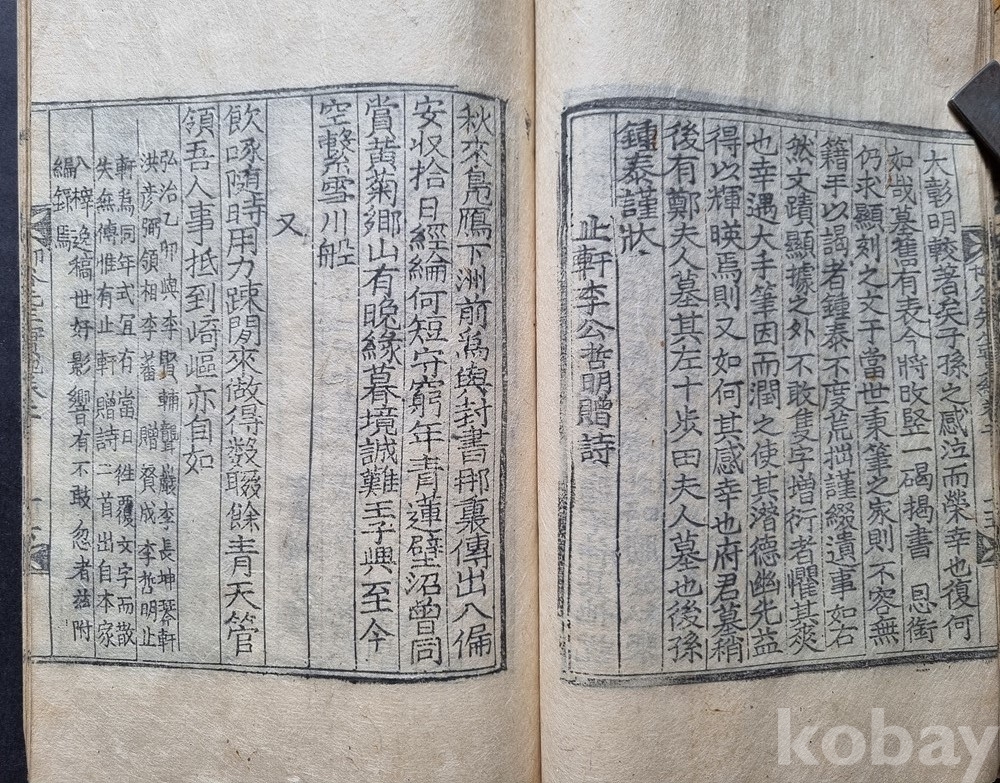 大彰明較著矣子孫之感泣而榮幸也復何
如哉墓舊有表今將改竪一碣揭書 恩銜
仍求顯刻之文于當世秉筆之家則不容無
籍乎以謁者鍾泰不度荒拙謹綴遺事如右
然文蹟顯據之外不敢隻字增衍者懼其爽
也幸遇大手筆因而潤之使其潛德幽光益
得以輝暎焉則又如何其感幸也府君墓稍
後有鄭夫人墓其左十步田夫人墓也後孫
鍾泰謹狀
止軒李公哲明贈詩
秋來鳧鴈下洲前爲與封書那裏傳出入偏
安收拾日經綸何短守窮年靑蓮壁沼曾同
賞黃菊鄕山有晩緣暮境誠難王子興至今
空繫雪川船
又
飮啄隨時用力踈閒來做得數聯餘靑天管
領吾人事抵到崎嶇亦自如
弘治乙卯與李賢輔聾巖李長坤琴軒
洪彦弼領相李蕃贈贊成李哲明止
軒爲同年式宜有當日徃覆文字而散
失無傳惟有止軒贈詩二首出自本家
入梓逸稿世好影響音有不敢忽者玆附
編錄焉
kobay